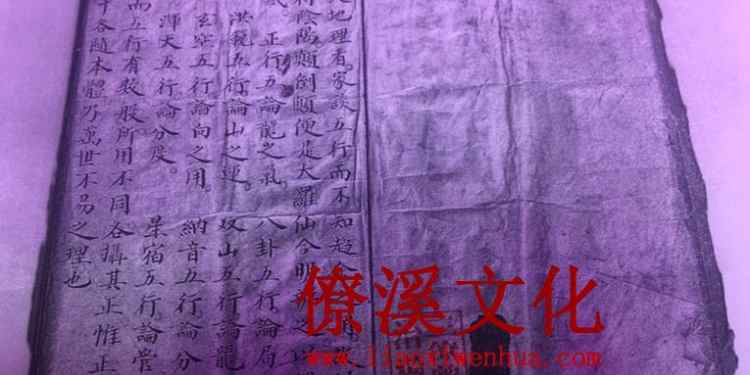 地理者家談五行而不知超
陰陽顛倒顛便是大羅仙今明
正行五論龍之氣 八卦五行論局
洪範五行論山之運 双山五行論龍
玄空五行論向之用 納音五行論分
渾天五行論分度 星宿五行論
而五行有數般所用不同各搆其正惟正
各隨本體乃萬世不易之理也
僚溪文化
www.liaoxiwenhua.com